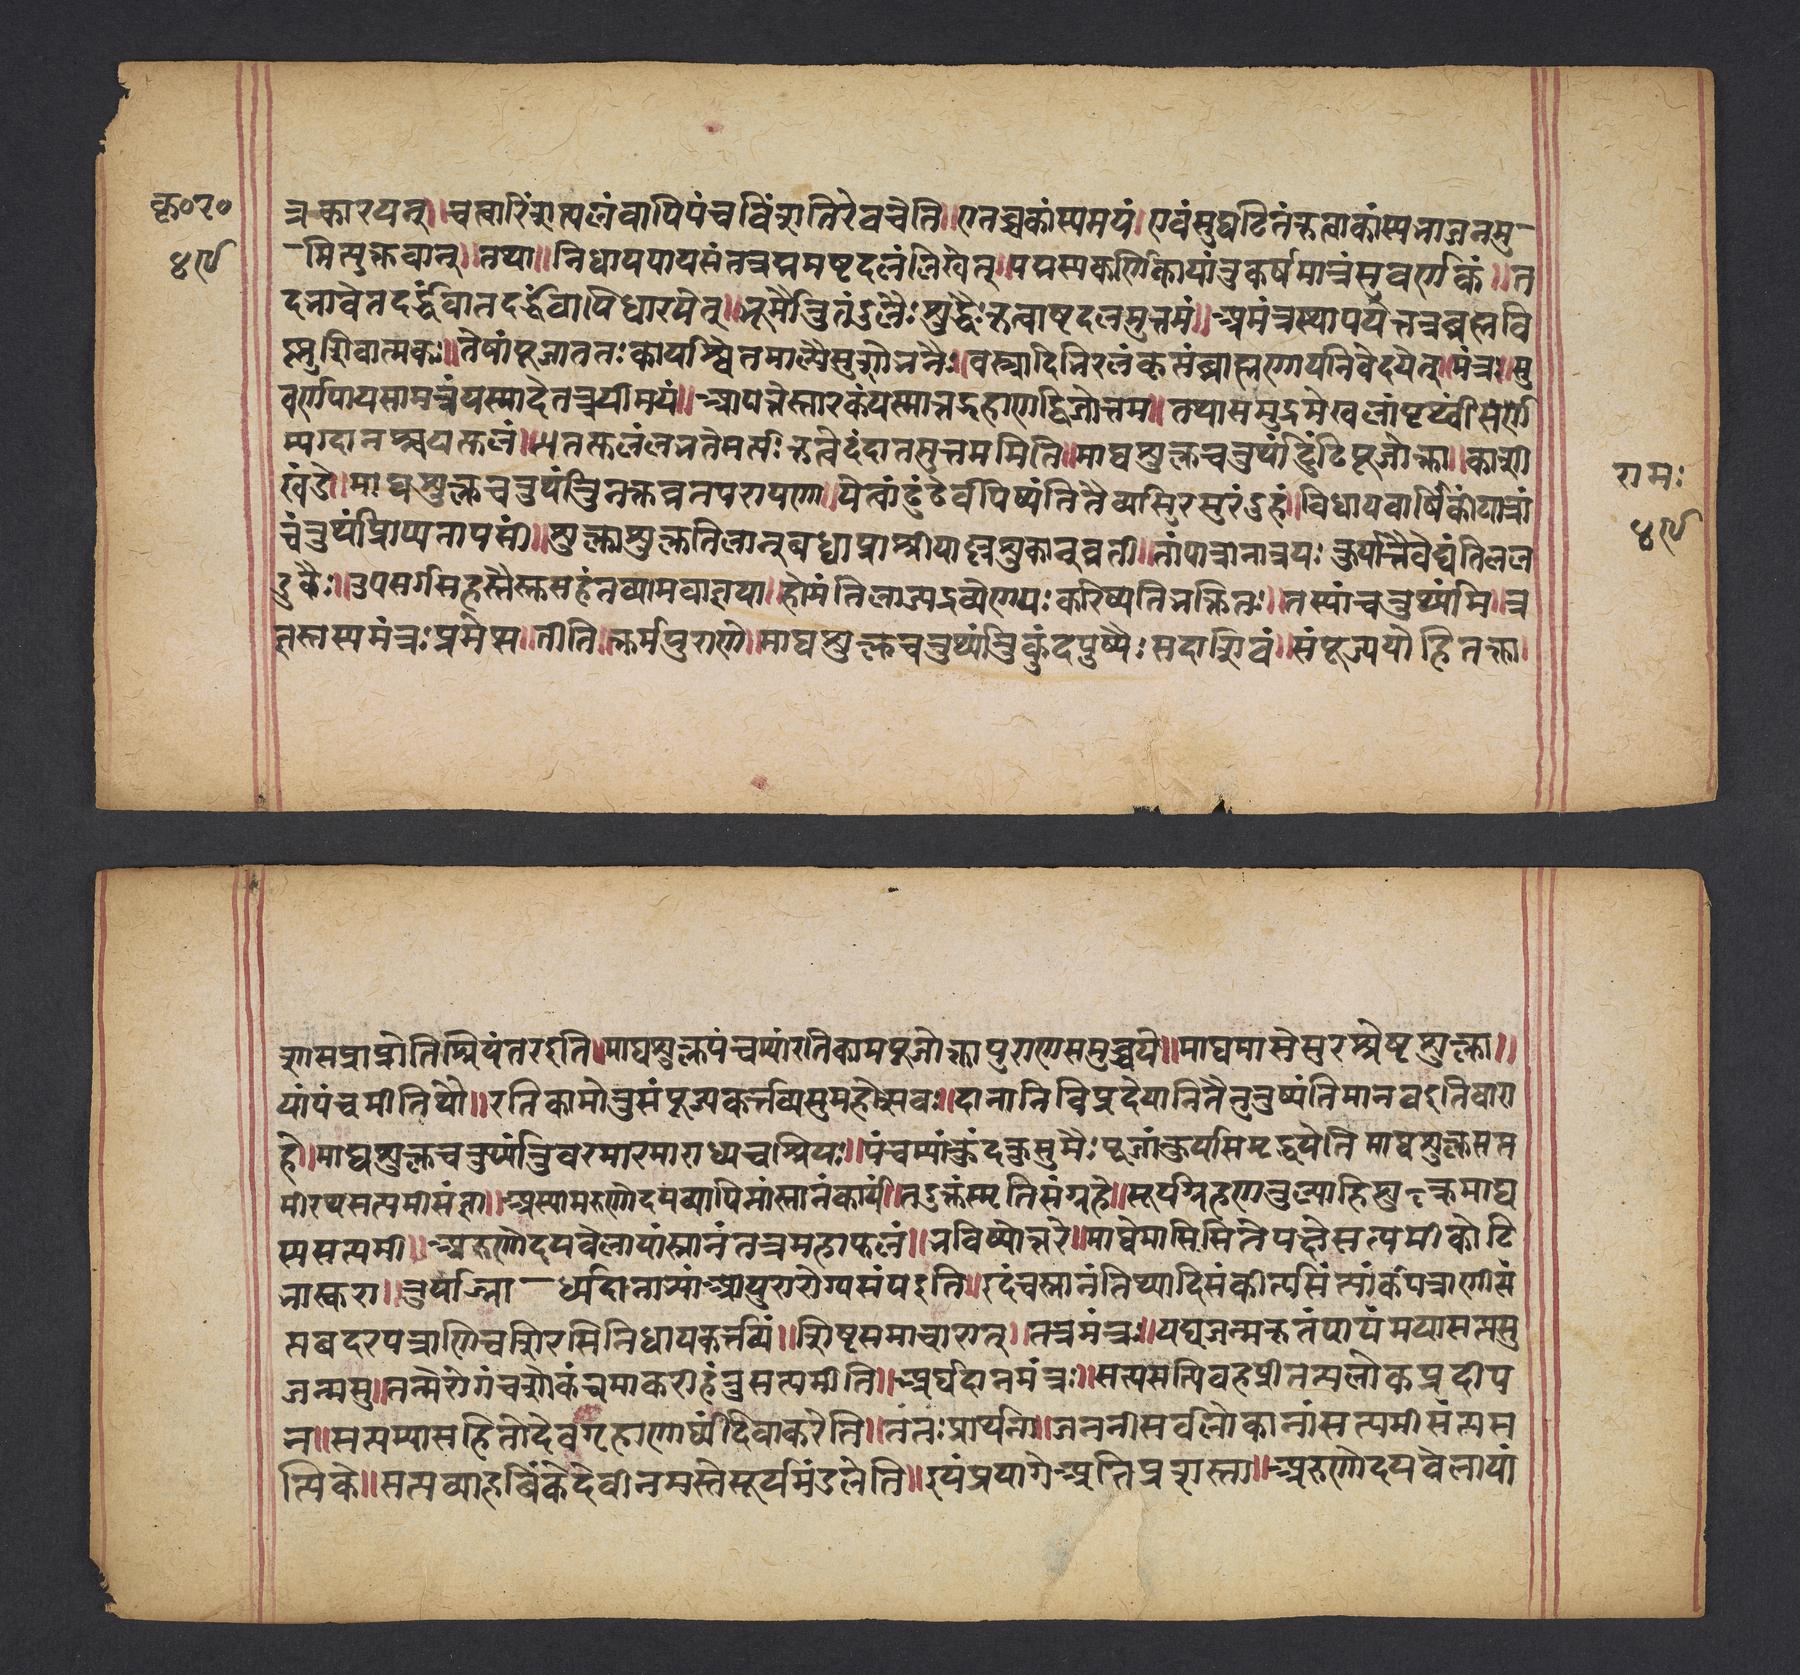 कृ०र०
४९
त्रकारयेत्॥ चत्वारिंशत्पलंवापिपंचविंशतिरेवचेति॥ एतच्चकांस्यमयं॥ एवंसुघटितंकृत्वाकांस्यभाजनमु–
–मित्युक्तवान्॥ तथा॥ निधायपायसंतत्रपद्ममष्टदलंलिखेत्॥ पद्मस्यकर्णिकायांतुकर्षमात्रंसुवर्णकं॥ त
दभावेतदर्द्धंवातदर्द्धंवापिधारयेत्॥ भूमौव्रितंडुलैः शुद्धैः कृत्वाष्टदलमुत्तमं॥ अमंत्रस्थापयेत्तत्रब्रह्मवि
ष्णुशिवात्मकः॥ तेषांपूजाततः कार्याश्वेतमाल्यैसुशोभनैः॥ वस्त्रादिभिरलंकृत्यब्राह्मणायनिवेदयेत्॥ मंत्रः॥ सु
वर्णपायसामत्रंयस्मादेतत्त्रयीमयं॥ आपत्तेस्तारकंयस्मात्तद्गृहाणद्विजोत्तम॥ तथासमुद्रमेखलांपृथ्वींसंणे
म्यग्दानश्चयत्फलं॥ तत्फलंलभतेमर्त्यः कृत्वेदंदानमुत्तममिति॥ माघशुक्लचतुर्थ्यांढुंढिपूजोक्ता॥ काशी
खंडे॥ माघशुक्लचतुर्थ्यांतुनक्तव्रतपरायणा॥ येत्वांढुंढेर्चयिष्यंतितेर्च्यासुरसुरंद्रुहं॥ विधायवार्षिकींयात्रां
चंतुर्थीप्राप्यतापसीं॥ शुक्लाशुक्लतिलान्बध्वाप्राश्नीयाल्लड्डुकान्व्रती॥ तांयात्रांनात्रयः कुर्यान्नैवेद्यंतिलल
डुकैः॥ उपसर्गसहस्रैस्तुसहंतव्यामवाज्ञया॥ होमंतिलाज्यद्रव्येणयः करिष्यतिभक्तितः॥ तस्यांचतुर्थ्यांमि॥ त्र
तत्तस्यमंत्रः प्रमेत्स॥ तीति॥ कूर्मपुराणे॥ माघशुक्लचतुर्थ्यांतुकुंदपुष्पैः सदाशिवं॥ संपूज्ययोहितक्ता॥
रामः
४९
शीसप्राप्नोतिश्रियंतरइति॥ माघशुक्लपंचम्यांरतिकामपूजोक्तापुराणसमुच्चये॥ माघमासेसुरश्रेष्टशुक्ला॥
यांपंचमीतिथौ॥ रतिकामोतुसंपूज्यकर्त्तव्यसुमहोत्सवः॥ दानानिविप्रदेयानितेनतुष्यंतिमानवइतिवारा
हे॥ माघशुक्लचतुर्थ्यांतुवरमारमाराध्यचश्रियः॥ पंचम्यांकुंदकुसुमैः पूजांकुर्यासिमृद्धयेति माघशुक्लसप्त
मीरथसप्तमीसंज्ञा॥ अस्यामरुणोदयव्यापिनीस्नानंकार्या॥ तदुक्तंस्मृतिसंग्रहे॥ सूर्यग्रहणतुल्याहिशुक्लामाघ
स्यसप्तमी॥ अरुणोदयवेलायांस्नानंतत्रमहाफलं॥ भविष्योत्तरे॥ माघेमासिसितेपक्षेसप्तमीकोटि
भास्करा॥ कुर्यात्स्ना–र्घ्यदानाभ्यांआयुरारोग्यसंपदइति॥ इदंचस्नानंतिथ्यादिसंकीर्त्यसप्तार्कपत्राणिस
प्तबदरपत्राणिचशिरसिनिधायकर्त्तव्यं॥ शिष्टसमाचारात्॥ तत्रमंत्रः॥ यद्यज्जन्मकृतंपापंमयासप्तसु
जन्मसु॥ तन्मेरोगंचशोकंचमाकरीहंतुसप्तमीति॥ अर्घदानमंत्रः॥ सप्तसप्तिवहप्रीतसप्तलोकप्रदीप
न॥ सप्तम्यासहितोदेवगृहाणार्घ्यंदिवाकरेति॥ ततः प्रार्थना॥ जननीसर्वलोकानांसप्तमीसप्तस
प्तिके॥ सप्तव्याहृतिकेदेवीनमस्तेसूर्यमंडलेति॥ इयंप्रयागेअतिप्रशस्ता॥ अरुणोदयवेलायां